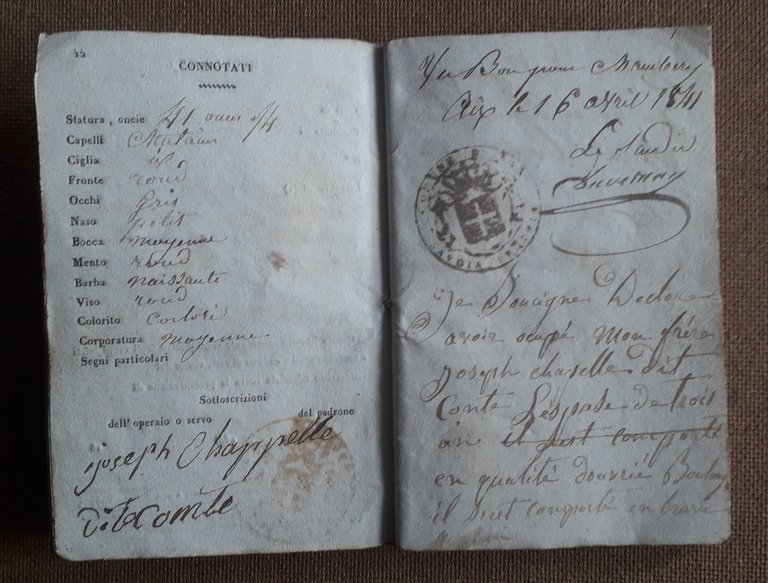 12
CONNOTATI
Statura, oncie 41 onces 3/4
Capelli Chatains
Ciglia id
Fronte rond
Occhi Gris
Naso petit
Bocca moyenne
Mento rond
Barba naissante
Viso rond
Colorito
Corporatura moyenne
Segni particolari
Sottoscrizioni
dell' operaio o servo del padrone
joseph Chappelle
dit Combe
Vu Bon pour
Aix le 16 avril 1841
Le Sindic
SAVOIA
Je Souсigne Declare
avoir ocupé mon frére
joseph chapelle dit
Conte L'espase de trois
an il s'est comporté
en qualité douvrié
il s'est comporté en brave